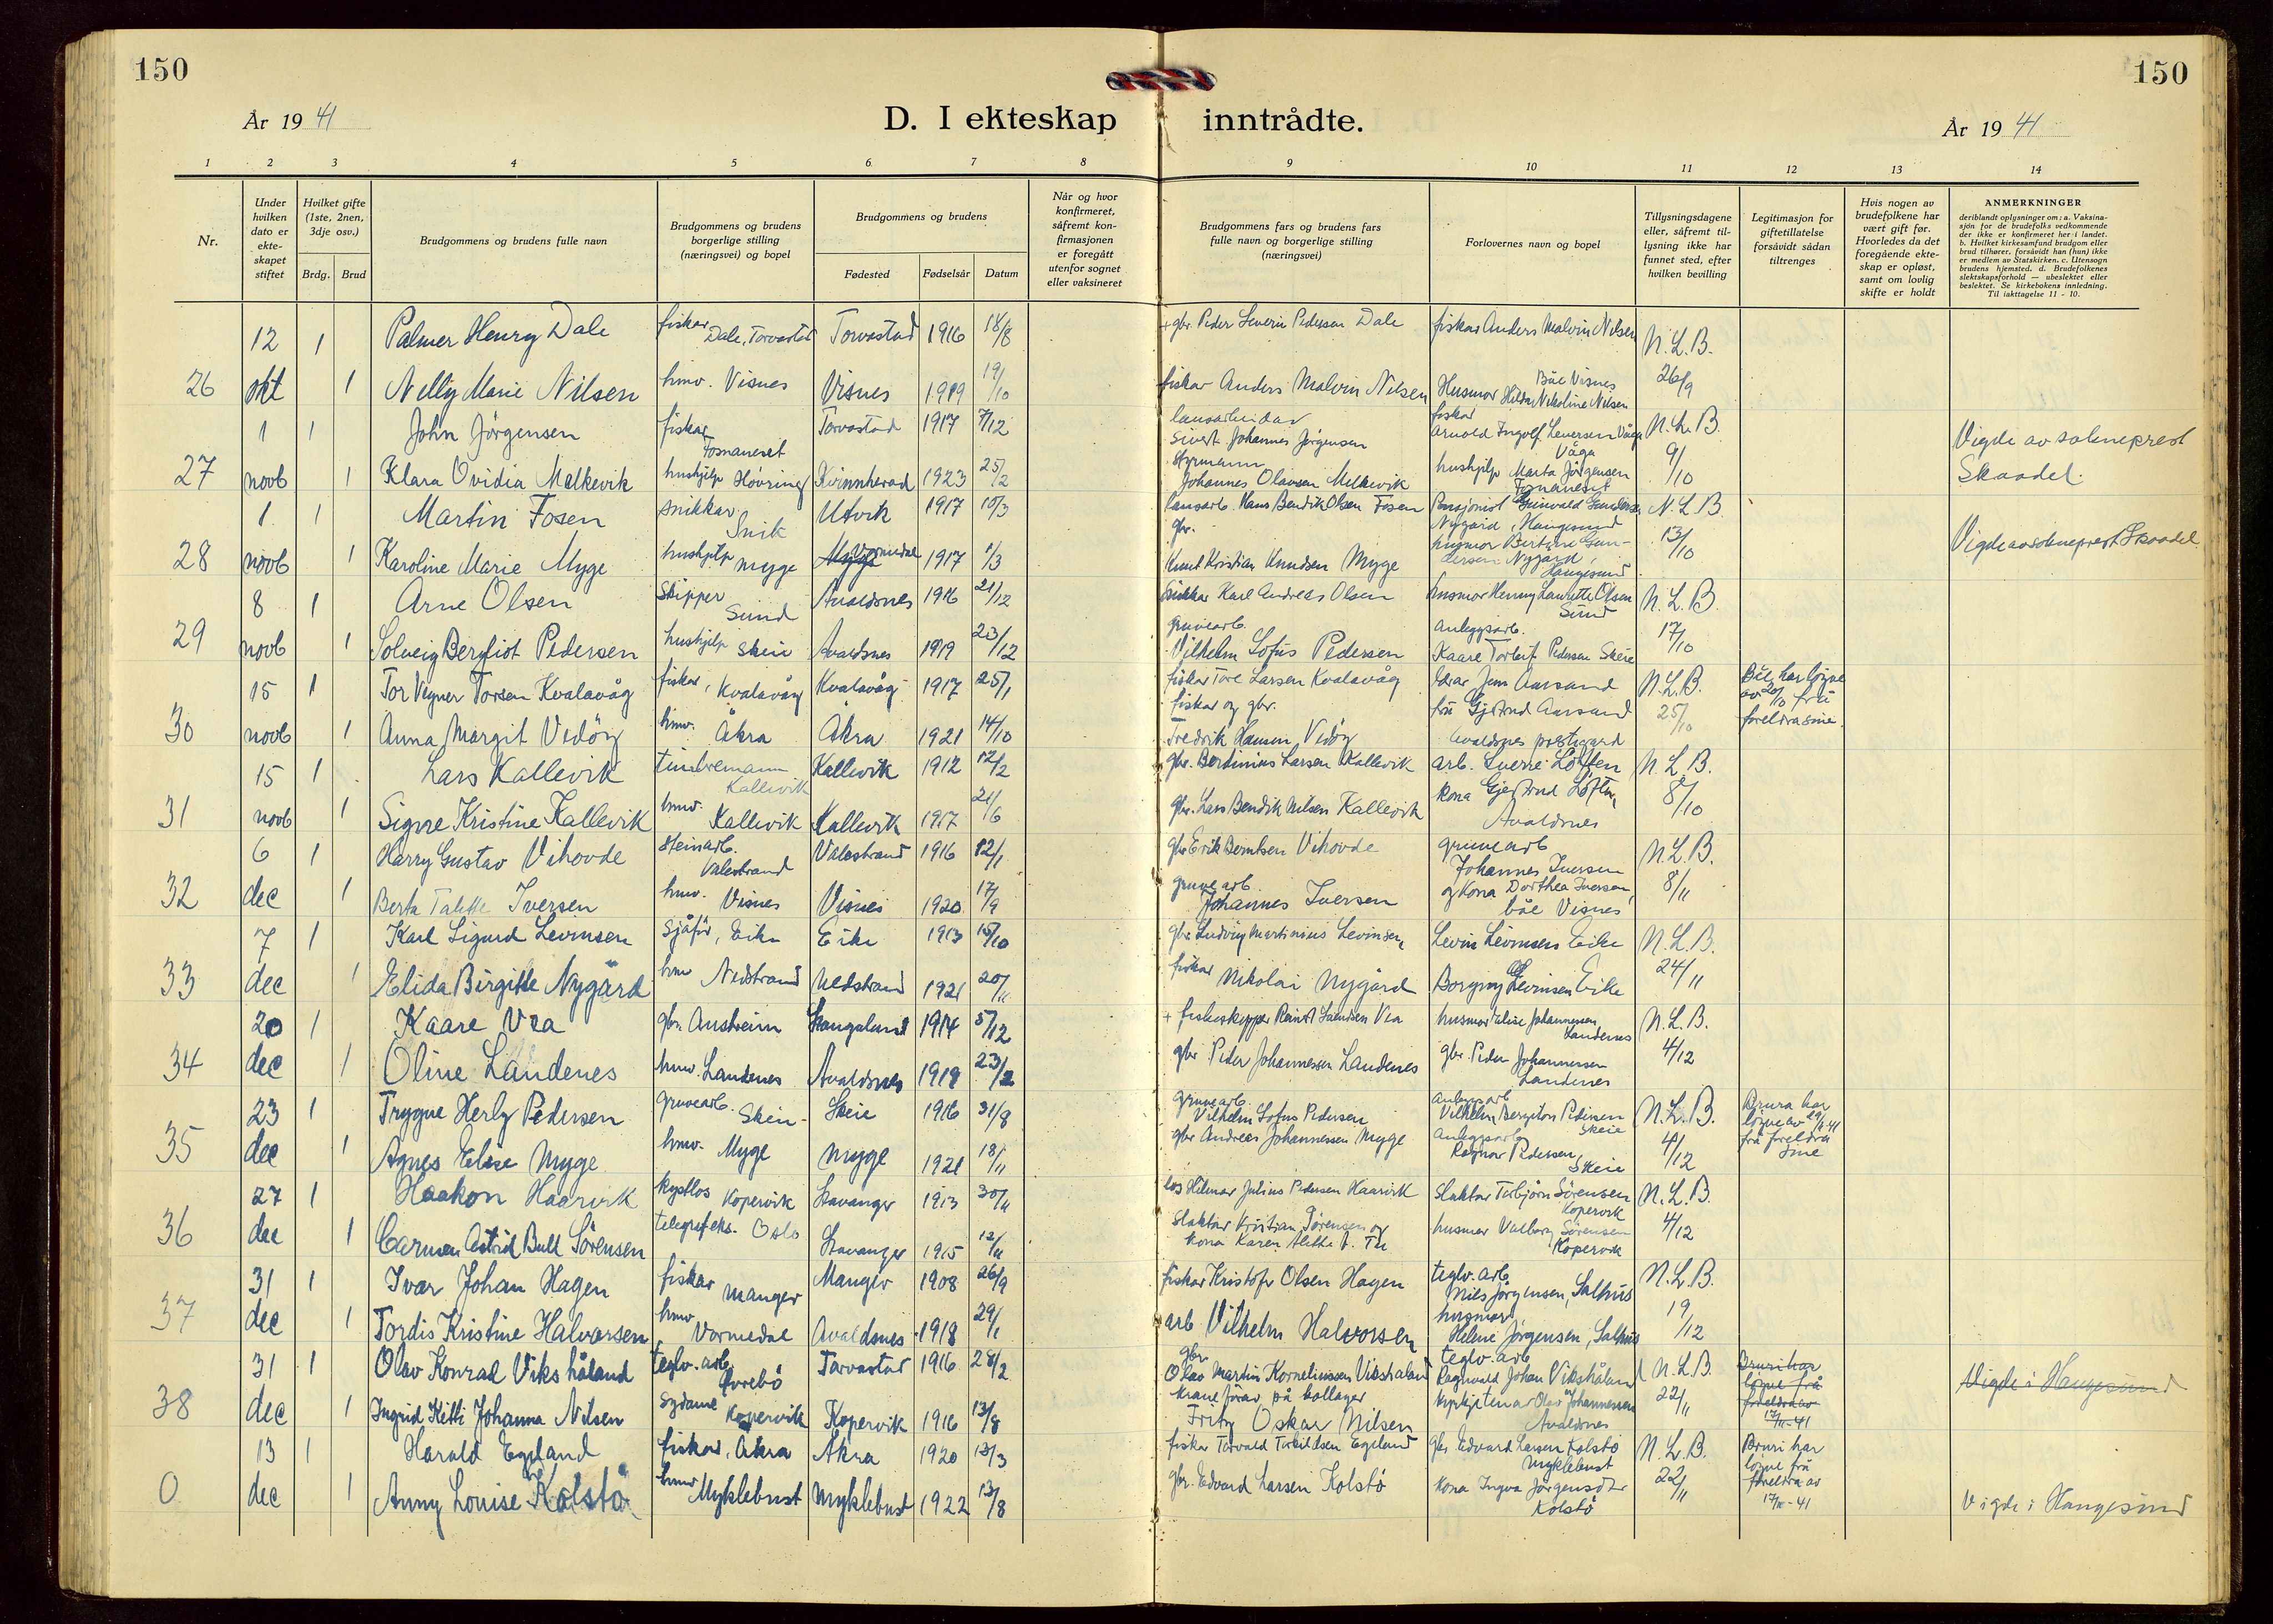 150
150
År 19 41
D. I ekteskap inntrådte.
År 19 41
1 2 3 4 5 6 7 8 9 10 11 12 13 14
Nr.
Under hvilken dato er ekte- skapet stiftet
Hvilket gifte (1ste, 2nen, 3dje osv.)
Brdg. Brud
Brudgommens og brudens fulle navn
Brudgommens og brudens borgerlige stilling (næringsvei) og bopel
Brudgommens og brudens
Fødested Fødselsår Datum
Når og hvor konfirmeret, såfremt kon- firmasjonen er foregått utenfor sognet eller vaksineret
Brudgommens fars og brudens fars fulle navn og borgerlige stilling (næringsvei)
Forlovernes navn og bopel
Tillysningsdagene eller, såfremt til- lysning ikke har funnet sted, efter hvilken bevilling
Legitimasjon for giftetillatelse forsåvidt sådan tiltrenges
Hvis nogen av brudefolkene har vært gift før. Hvorledes da det foregående ekte- skap er opløst, samt om lovlig skifte er holdt
ANMERKNINGER
deriblandt oplysninger om: a. Vaksina- sjón for de brudefolks vedkommende der ikke er konfirmeret her i landet. b. Hvilket kirkesamfund brudgom eller brud tilhører, forsåvidt han (hun) ikke er medlem av Statskirken. c. Utensogn brudens hjemsted. d. Brudefolkenes slektskapsforhold — ubeslektet eller beslektet. Se kirkebokens innledning. Til iakttagelse 11 - 10.
12 1 Palmer Henry Dale fiskar Dale, Torvastad Torvastad 1916 18/8 + gbr. Peder Severin Pedersen Dale fiskar Anders Malvin Nilsen N.L.B.
26 okt 1 Nelly Marie Nilsen hmv. Visnes Visnes 1919 19/10 fiskar Anders Malvin Nilsen Husmor Hilda Nikoline Nilsen Båe Visnes 26/9
1 1 John Jörgensen fiskar Fosnaneset Torvastad 1917 7/12 lausarbeidar Sivert Johannes Jörgensen fiskar Arnold Ingolf Våga Våga N.L.B. Vigde av sokneprest
27 novb 1 Klara Ovidia Melkevik hushjelp Hövring Kvinnherad 1923 25/2 styrmann Johannes Olavsen Melkevik hushjelp Marta Jörgensen Fosnaneset 9/10 Skaadel.
1 1 Martin Fosen snikkar Snik Utvik 1917 10/3 lausarb. Hans Bendik Olsen Fosen Pensjonist Nygård, Haugesund N.L.B.
28 novb 1 Karoline Marie Myge hushjelp Myge Vormedal 1917 1/3 gbr. Knut Kristian Knudsen Myge husmor Bertine Gun- dersen Nygård, Haugesund 13/10 Vigde av sokneprest Skaadel.
8 1 Arne Olsen Skipper Sund Avaldsnes 1916 21/12 Snikkar Karl Andreas Olsen husmor Henny Laurette Olsen Sund N.L.B.
29 novb 1 Solveig Bergliot Pedersen hushjelp Skeie Avaldsnes 1919 23/12 gruvearb. Vilhelm Lofus Pedersen anleggsarb. Kaare Torleif Pedersen Skeie 17/10
15 1 Tor Vegner Torsen Kvalavåg fiskar, Kvalavåg Kvalavåg 1917 25/1 fiskar Tore Larsen Kvalavåg lærar Jens Aarsand N.L.B. Båe har löyve av 20/10 frå foreldra sine.
30 novb 1 Anna Margit Vedöy hmv. Åkra Åkra 1921 14/10 fiskar og gbr. Fredrik Hansen Vedöy frú Gjertrud Aarsand Avaldsnes prestegard 25/10
15 1 Lars Kallevik timbremann Kallevik Kallevik 1912 12/2 gbr. Bertinius Larsen Kallevik arb. Sverre Löften N.L.B.
31 novb 1 Signe Kristine Kallevik hmv. Kallevik Kallevik 1917 21/6 gbr. Lars Bendik Nilsen Kallevik kona Gjertrud Löften, Avaldsnes 8/10
6 1 Harry Gustav Vihovde steinarb. Valestrand Valestrand 1916 12/1 gbr Erik Berntsen Vihovde gruvearb Johannes Iversen N.L.B.
32 dec 1 Berta Talette Iversen hmv. Visnes Visnes 1920 17/9 gruvearb. Johannes Iversen og kona Dorthea Iversen, båe Visnes 8/11
7 1 Karl Sigurd Levinsen Sjåför, Eike Eike 1913 15/10 gbr Ludvig Martinius Levinsen, Levin Levinsen Eike N.L.B.
33 dec 1 Elida Birgitte Nygård hmv Nedstrand Nedstrand 1921 20/11 fiskar Nikolai Nygård Borgny Levinsen Eike 24/11
20 1 Kaare Vea gbr. Austreim Stangeland 1914 5/12 + fiskeskipper Reint Svendsen Vea husmor Talise Johannessen Landenes N.L.B.
34 dec 1 Oline Landenes hmv. Landenes Avaldsnes 1919 23/2 gbr Peder Johannessen Landenes gbr. Peder Johannessen Landenes 4/12
23 1 Trygve Herly Pedersen gruvearb. Skeie Skeie 1916 31/8 gruvearb. Vilhelm Lofus Pedersen anleggsarb Vilhelm Bergiton Pedersen Skeie N.L.B. Brura har löyve av 29/11-41 frå foreldra sine
35 dec 1 Agnes Elise Myge hmv. Myge Myge 1921 18/11 gbr Andreas Johannessen Myge anleggsarb Ragnar Pedersen, Skeie 4/12
27 1 Haakon Haarvik kystlos Kopervik Stavanger 1913 30/11 los Hilmar Julius Pedersen Haarvik Slaktar Torbjörn Sörensen Kopervik N.L.B.
36 dec 1 Carmen Astrid Bull Sörensen telegrafeks. Oslo Stavanger 1915 12/11 slaktar Kristian Sörensen og kona Karen husmor Valborg Sörensen Kopervik 4/12
31 1 Ivar Johan Hagen fiskar Manger Manger 1908 26/9 fiskar Kristofer Olsen Hagen teglv. arb. Nils Jörgensen, Salhus N.L.B.
37 dec 1 Tordis Kristine Halvorsen hmv Vormedal Avaldsnes 1918 29/1 arb Vilhelm Halvorsen husmor Helene Jörgensen, Salhus 19/12
31 1 Olav Konrad Vikshåland teglv. arb. Torvastad 1916 28/2 gbr Olav Martin Korneliussen Vikshåland teglv. arb Ragnvald Johan Vikshåland N.L.B. Bruri har löyve frå foreldra av 17/11-41 Vigde i Haugesund
38 dec 1 Ingrid Kitti Johanna Nilsen Sydame Kopervik Kopervik 1916 13/8 kraneförar på kollager Fritz Oskar Nilsen kyrkjetenar Olav Johannessen Avaldsnes 22/11
13 1 Harald Egeland fiskar, Åkra Åkra 1920 13/3 fiskar Torvald Torkildsen Egeland gbr. Edvard Larsen Kolstö Myklebust N.L.B. Bruri har löyve frå foreldra av 17/11-41
0 dec 1 Anny Louise Kolstö hmv Myklebust Myklebust 1922 13/8 gbr. Edvard Larsen Kolstö kona Ingva Jörgensdtr Kolstö 22/11 Vigde i Haugesund